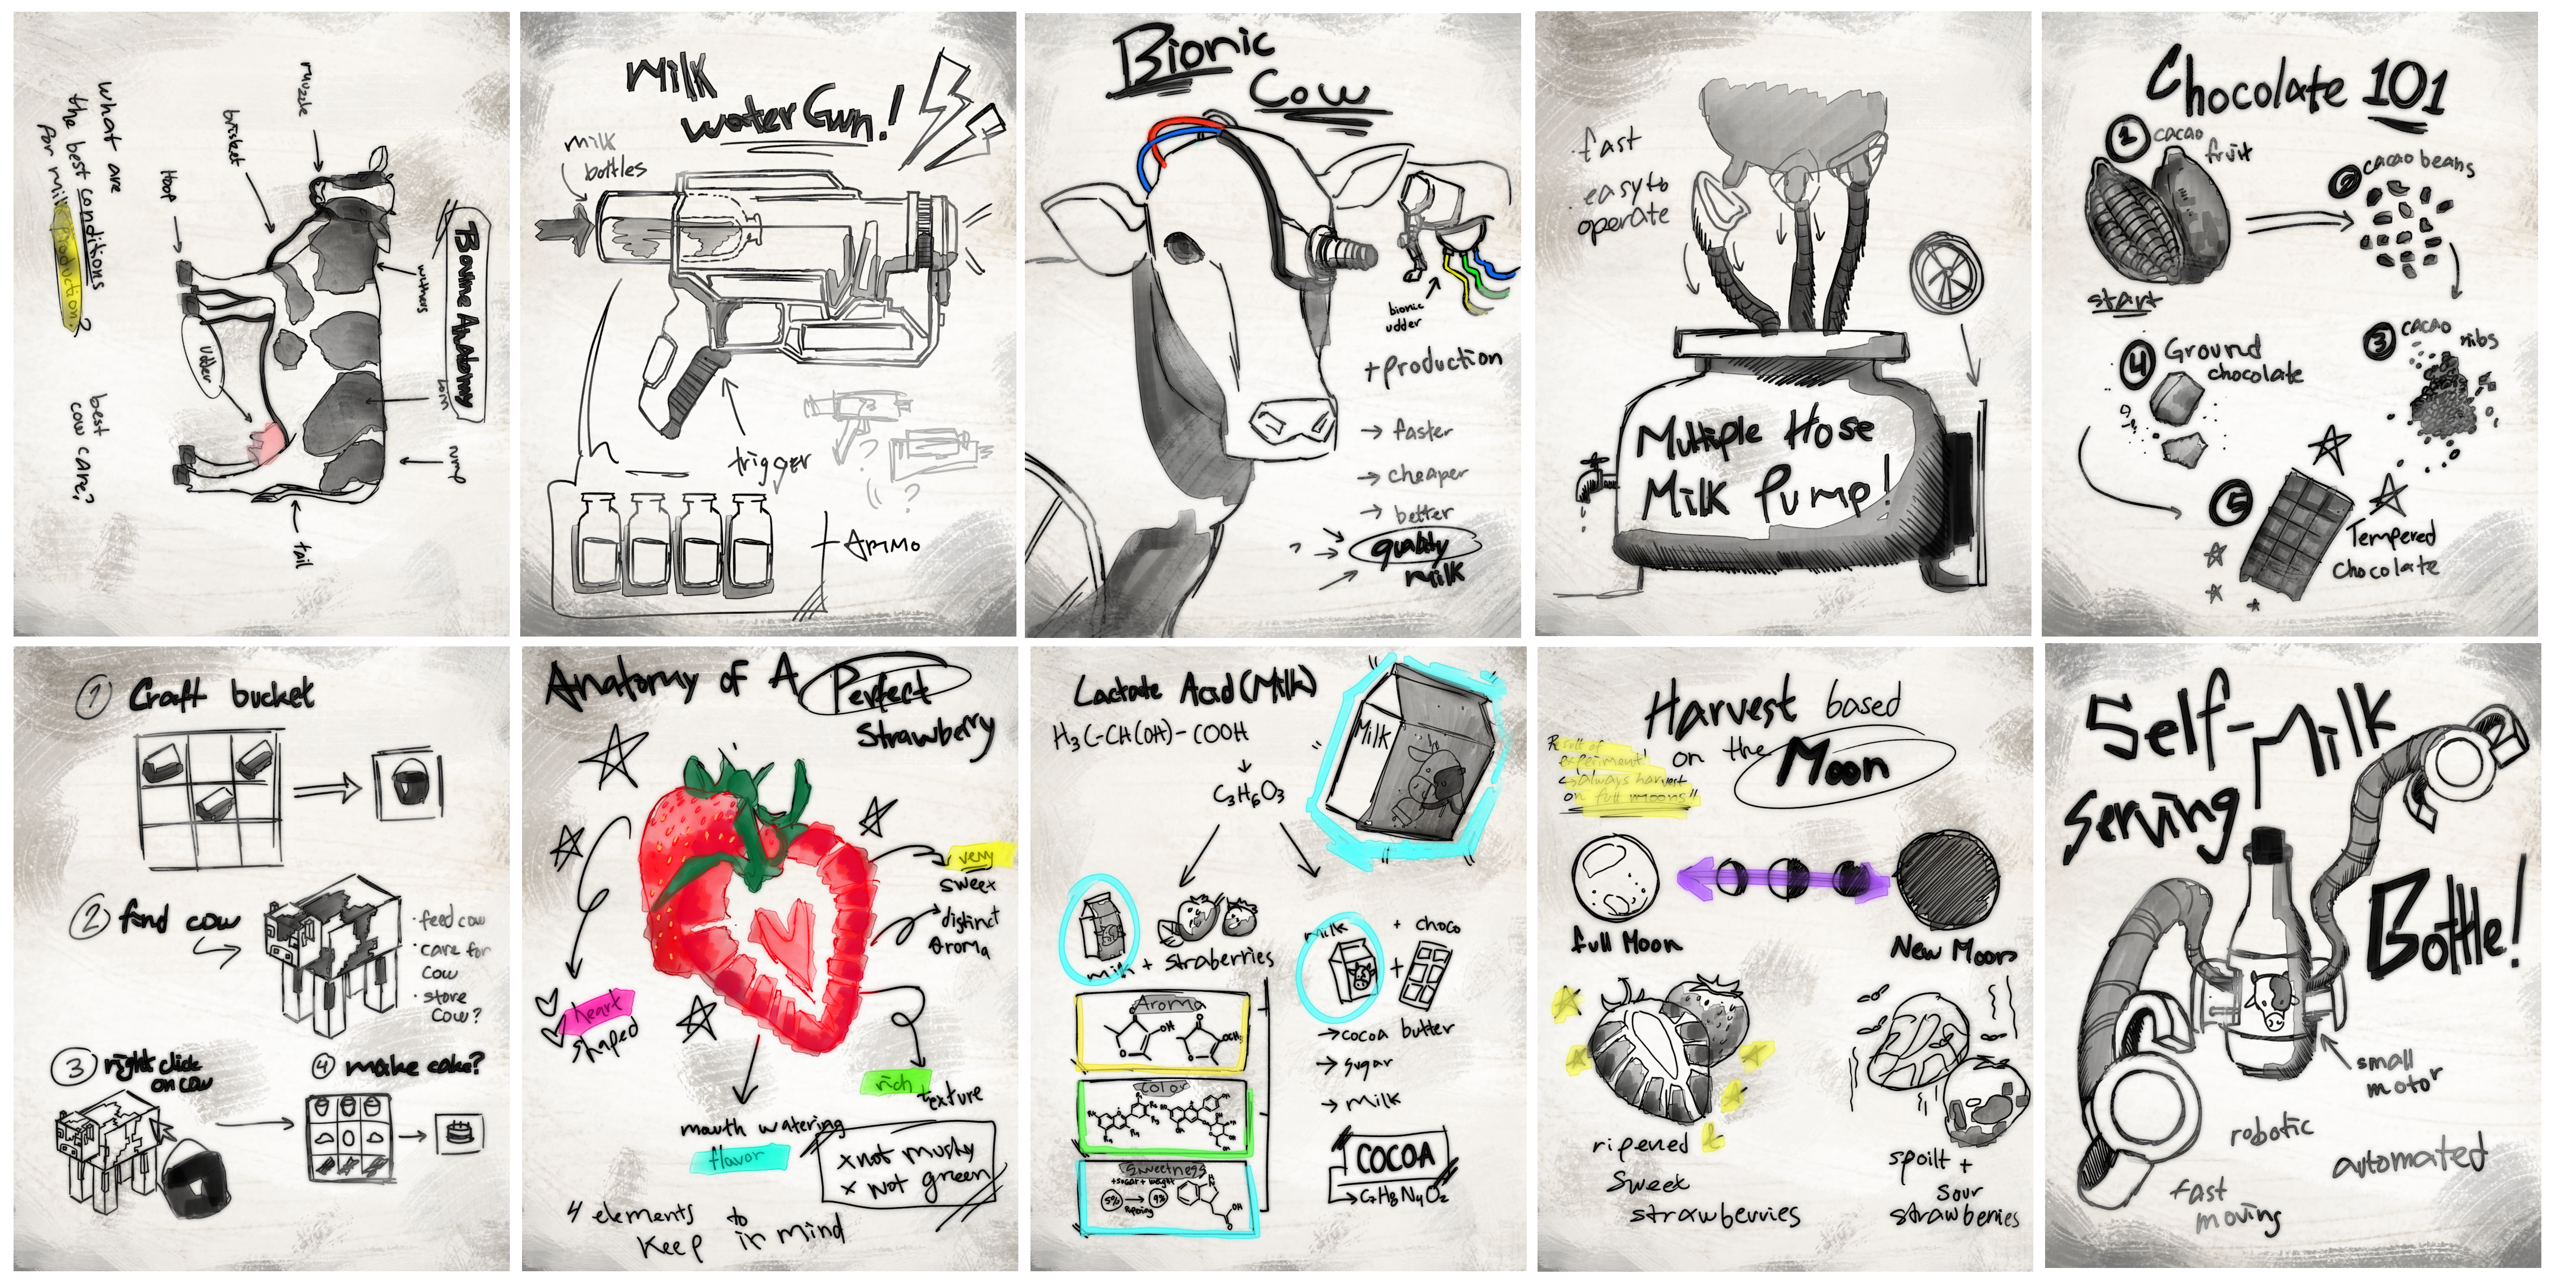 Bovine Anatomy
muzzle
brisket
Hoof
withers
loin
rump
udder
tail
what are
the best conditions
for milk production?
best
cow care?
Milk
water Gun!
milk
bottles
trigger
+ AMMO
?
?
Bionic
Cow
bionic
udder
+production
→ faster
→ cheaper
→ better
quality
milk
?
· fast
· easy to
operate
Multiple Hose
Milk Pump!
Chocolate 101
1 cacao
fruit
start
2 cacao beans
3 cacao
nibs
4 Ground
chocolate
5
Tempered
chocolate
1 Craft bucket
2 find cow
· feed cow
· care for
cow
· store
cow?
3 right click
on cow
4 make cake?
Anatomy of A Perfect
Strawberry
very
sweet
distinct
aroma
heart
shaped
rich
texture
mouth watering
flavor
x not mushy
x not green
4 elements to
keep in mind
Lactate Acid (Milk)
H3C-CH(OH)-COOH
C3H6O3
Milk
milk + straberries
Aroma
OH
OCH3
Color
Sweetness
+sugar + weight
5% → 9%
Ripening
OH
O
milk + choco
→ cocoa butter
→ sugar
→ milk
COCOA
→ C7H8N4O2
Harvest based
on the Moon
Result of
experiment!
↳ always harvest
on full moons"
full Moon
New Moon
ripened
sweet
strawberries
spoilt +
sour
strawberries
Self-Milk
Serving
Bottle!
small
motor
robotic
automated
fast
moving